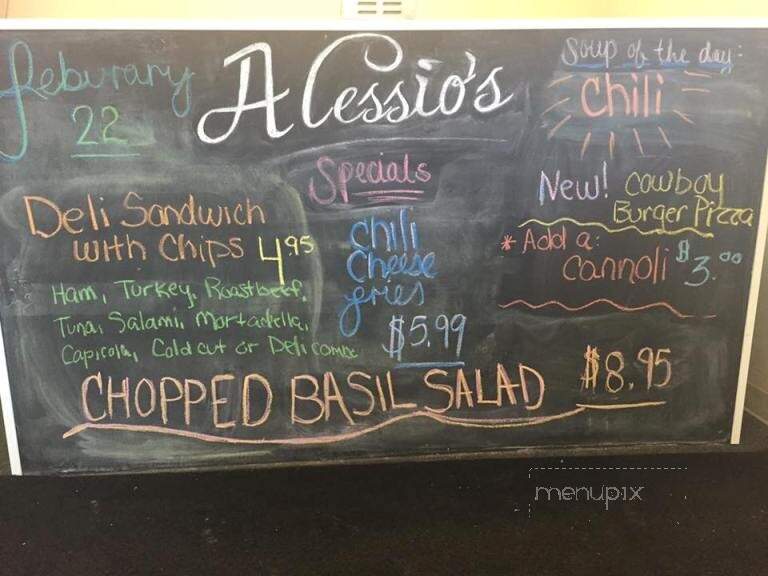 Feburary
22
Alessio's
Soup of the day:
Chili
Specials
New! Cowboy
Burger Pizza
* Add a:
Cannoli $3.00
Deli Sandwich
with Chips 4.95
Ham, Turkey, Roastbeef,
Tuna, Salami, Mortadella,
Capicola, Cold cut or Deli combo
Chili
Cheese
fries
$5.99
CHOPPED BASIL SALAD $8.95
menupix